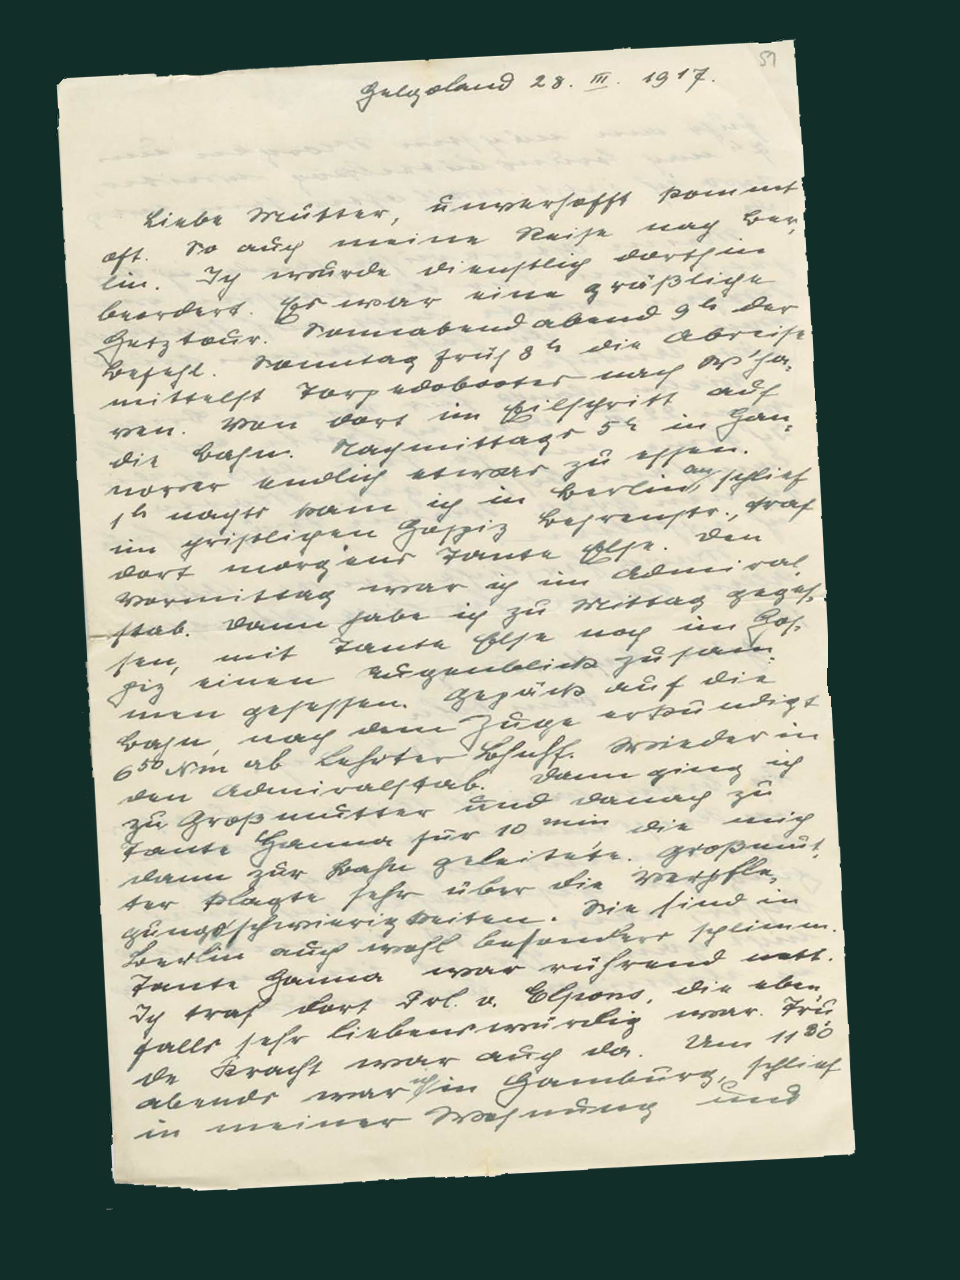 51
Helgoland 28. III. 1917.
Liebe Mutter, unverhofft kommt
oft. So auch meine Reise nach Ber-
lin. Ich wurde dienstlich dorthin
beordert. Es war eine gräßliche
Hetztour. Sonnabend abend 9h der
Befehl. Sonntag früh 8h die Abreise
mittelst Torpedobootes nach W'ha-
ven. Von dort im Eilschritt auf
die Bahn. Nachmittags 5h in Han-
nover endlich etwas zu essen.
1h nachts kam ich in Berlin an, schlief
im christlichen Hospiz Behrenstr., traf
dort morgens Tante Else. Den
Vormittag war ich im Admiral
stab. Dann habe ich zu Mittag geges-
sen, mit Tante Else noch im Hos-
piz einen Augenblick zusam-
men gesessen. Gepäck auf die
Bahn, nach dem Zuge erkundigt
6 50 Nm ab Lehrter Bhnhf. Wieder in
den Admiralstab. Dann ging ich
zu Großmutter und danach zu
Tante Hanna für 10 min die mich
dann zur Bahn geleitete. Großmut-
ter klagte sehr über die Verpfle-
gungsschwierigkeiten. Sie sind in
Berlin auch wohl besonders schlimm.
Tante Hanna war rührend nett.
Ich traf dort Frl. v. die eben
falls sehr liebenswürdig war. Tru
de Kracht war auch da. Um 11 30
abends war ich in Hamburg, schlief
in meiner Wohnung und